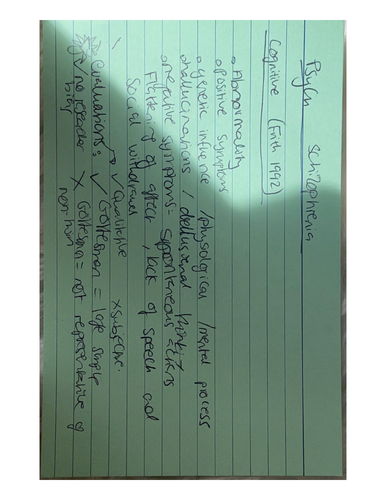 Psych Schizophrenia
Cognitive (Frith 1992)
• Abnormality
• positive symptoms
• genetic influence /physological /mental process
• hallucinations / dellusional thinking
• negative symptoms = spontaneous actions
Flattening of affect, lack of speech and
Social withdrawal
✓ Qualitative × subjective.
Evaluations: ✓ Gottesman = large sample
✓ no researcher × Gottesman = not representative of
bias non-